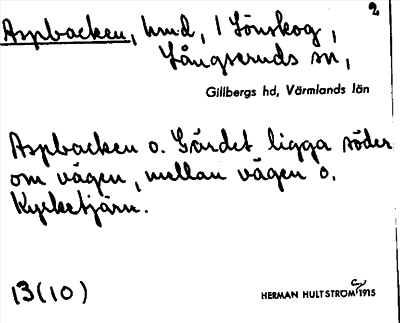 2
Aspbacken, hmd, 1 Lönskog,
Långseruds sn,
Gillbergs hd, Värmlands län
Aspbacken o. Gärdet ligga söder
om vägen, mellan vägen o.
Kyrketjärn.
13(10)
HERMAN HULTSTRÖM 1915